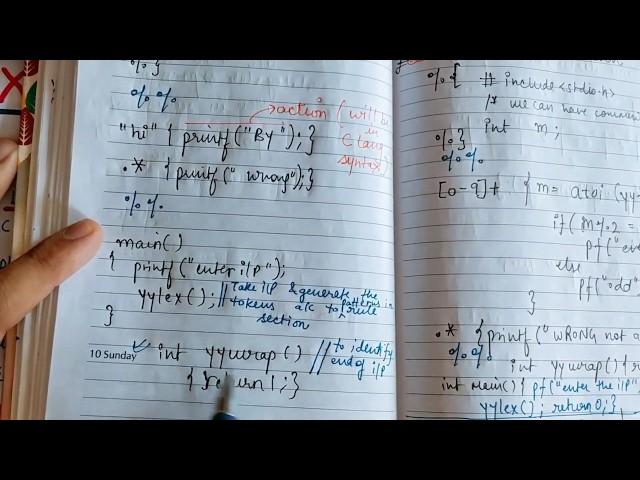 %}
%%
→ action ( will be
in
C lang
syntax)
"hi" { printf("By"); }
.* { printf(" wrong"); }
%%
main()
{ printf("enter i/p");
yylex(); // Take i/p & generate the
tokens a/c to patterns in
rule
section
}
10 Sunday int yywrap() // to identify
end of i/p
{ return 1; }
%{ # include <stdio.h>
/* we can have commen
int m;
%}
%%
[0-9]+ { m = atoi (yy
if( m%2 =
pf("eve
else
pf("odd"
}
.* { printf("WRONG not a
%%
int yywrap() { r
int main() { pf("enter the i/p"
yylex(); return 0; }